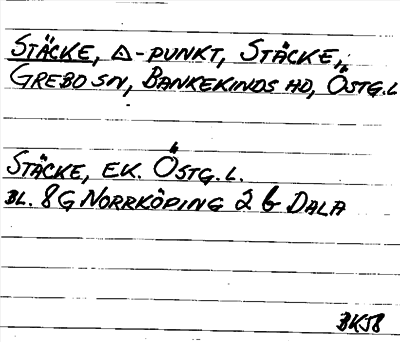 STÄCKE, △-PUNKT, STÄCKE,
GREBO SN, BANKEKINDS HD, ÖSTG.L
STÄCKE, EK. ÖSTG.L.
BL. 8G NORRKÖPING 2 b DALA
BK58